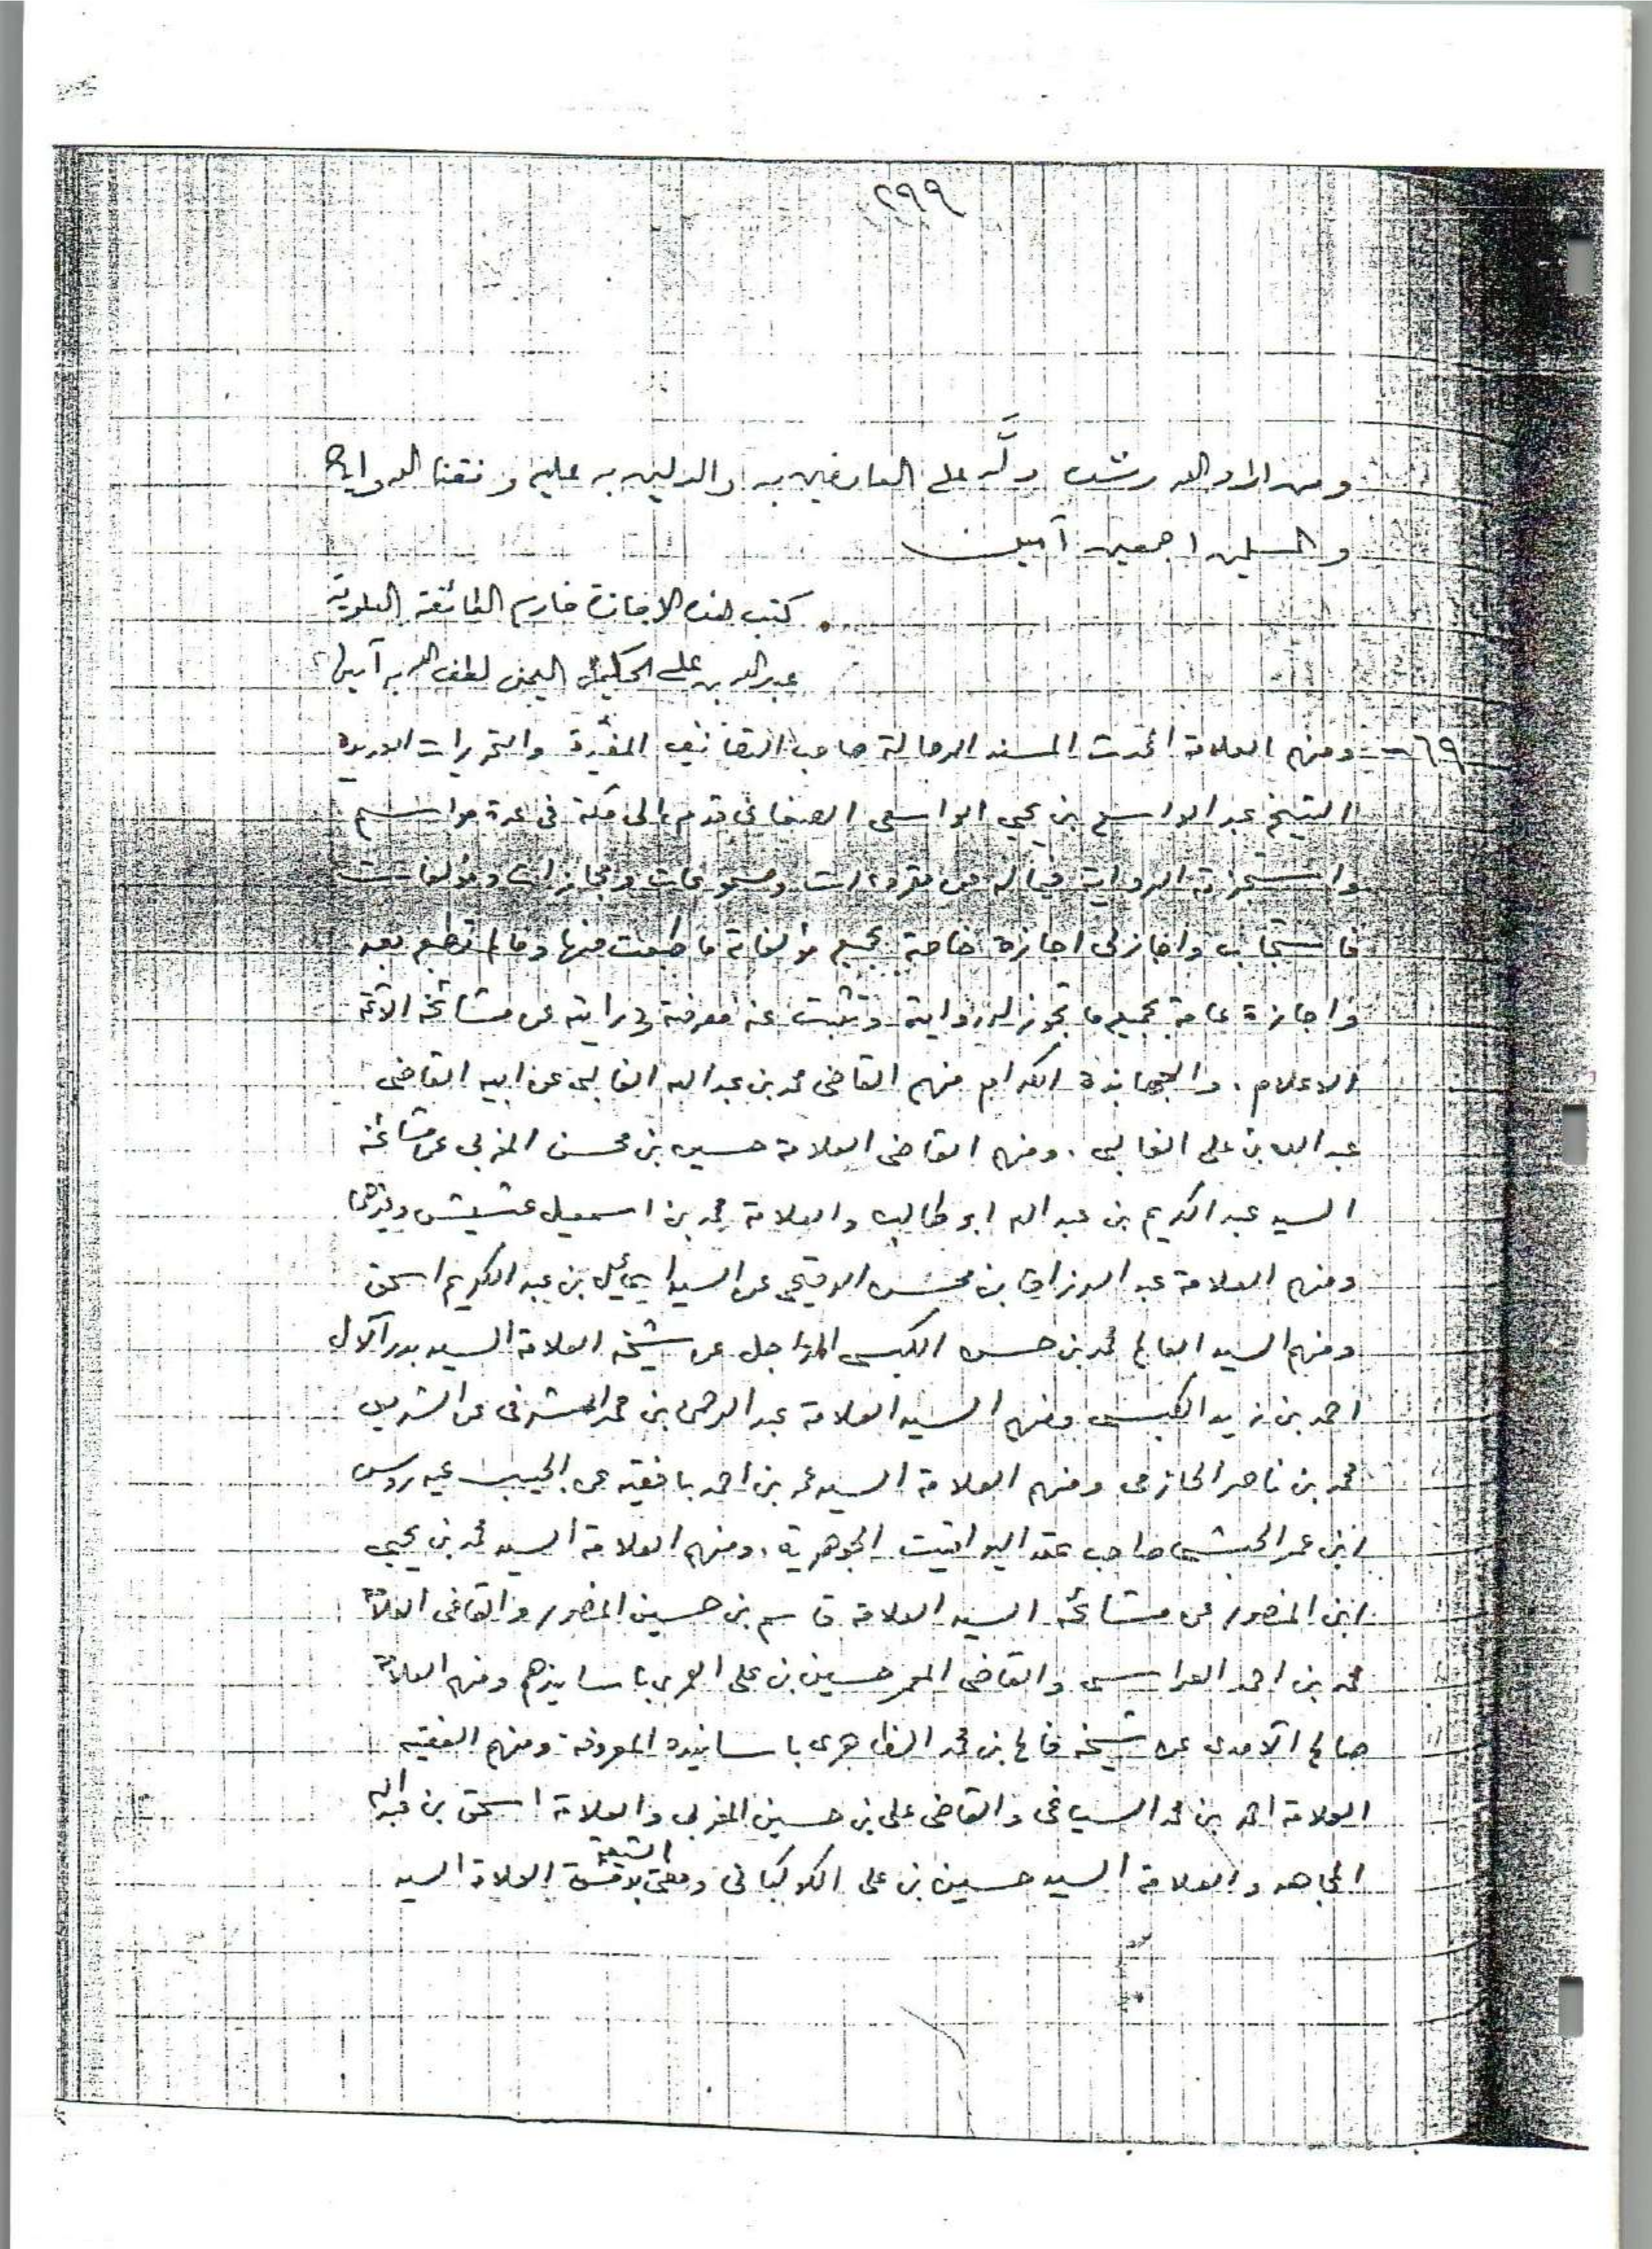 ٢٩٩
ومن اراد الله رشده دلَّه على العارفين به والدالين به عليه وفقنا الله واياه
والمسلمين اجمعين آمين
كتب هذه الاجازة خادم الطائفة العلوية
عبد الله بن علي الحكيم اليمني لطف الله به آمين
٦٩ - ومنهم العلامة المحدث المسند الرحالة صاحب التصانيف المفيدة والتحريرات
الشيخ عبد الواسع بن يحي الواسعى الصنعانى قدم الى مكة فى عدة مواسم
واستجزته الرواية فيما له من مقروءات ومسموعات ومجازات ومؤلفات
فاستجاب واجاز لى اجازة خاصة بجميع مؤلفاته ما طبعت منها وما لم تطبع بعد
واجازة عامة بجميع ما تجوز له روايته وتثبت عنه معرفته ودرايته عن مشائخه الائمة
الاعلام . والجهابذة الكرام منهم القاضى محمد بن عبد الله الغالبى عن ابيه القاضى
عبد الله بن على الغالبى . ومنهم القاضى العلامة حسين بن محسن المغربى عن مشائخه
السيد عبد الكريم بن عبد الله ابو طالب والعلامة محمد بن اسمعيل عشيش وغيرهما
ومنهم العلامة عبد الرزاق بن محسن الرقيحى عن السيد اسماعيل بن عبد الكريم اسحق
ومنهم السيد العالم محمد بن حسن الكبسى المراجل عن شيخه العلامة السيد بدر الآل
احمد بن زيد الكبسى ومنهم السيد العلامة عبد الرحمن بن محمد الشرفى عن الشريف
محمد بن ناصر الحازمى ومنهم العلامة السيد عمر بن احمد بافقيه عن الحبيب عيدروس
ابن عمر الحبشى صاحب عقد اليواقيت الجوهرية . ومنهم العلامة السيد محمد بن يحيى
ابن المنصور عن مشائخه السيد العلامة قاسم بن حسين المنصور والقاضى العلامة
محمد بن احمد العراسى والقاضى المعمر حسين بن على العمرى باسانيدهم ومنهم العلامة
صالح الآمدى عن شيخه فالح بن محمد الظاهرى باسانيده المعروفة ومنهم الفقيه
العلامة احمد بن محمد السياغى والقاضى على بن حسين المغربى والعلامة اسحق بن عبد الله
المجاهد والعلامة السيد حسين بن على الكوكبانى ومفتى الشيعة بدمشق العلامة السيد